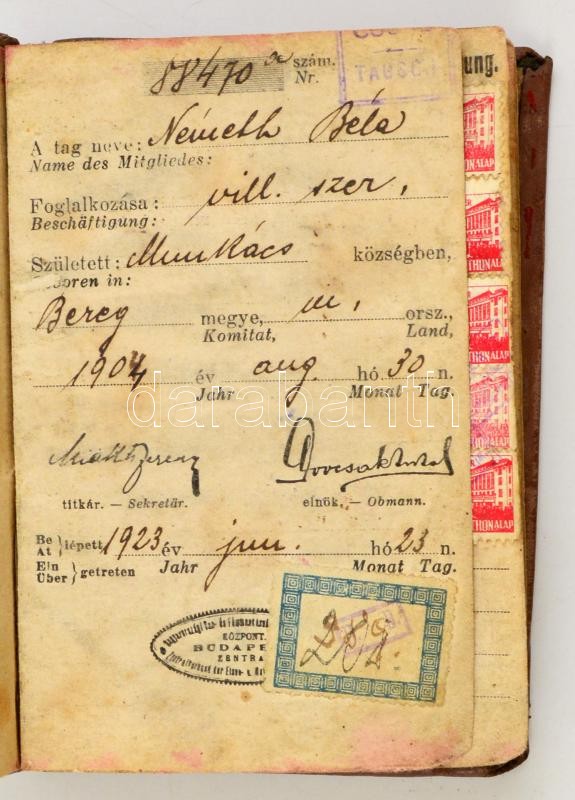 88470 a szám.
Nr.
TAUSCH
ung.
A tag neve: Németh Béla
Name des Mitgliedes:
Foglalkozása: vill. szer,
Beschäftigung:
Született: Munkács községben,
Geboren in:
Bereg megye, m, orsz.,
Komitat, Land,
1904 év aug. hó 30 n.
Jahr Monat Tag.
darabanth
titkár. — Sekretär. elnök. — Obmann.
Be
At } lépett 1923 év jun. hó 23 n.
Ein
Über } getreten Jahr Monat Tag.
KÖZPONT
BUDAPE
ZENTRA
Zentralverband der Eisen- u.
THONALAP
THONALAP
THONALAP
THONALAP
THONALAP